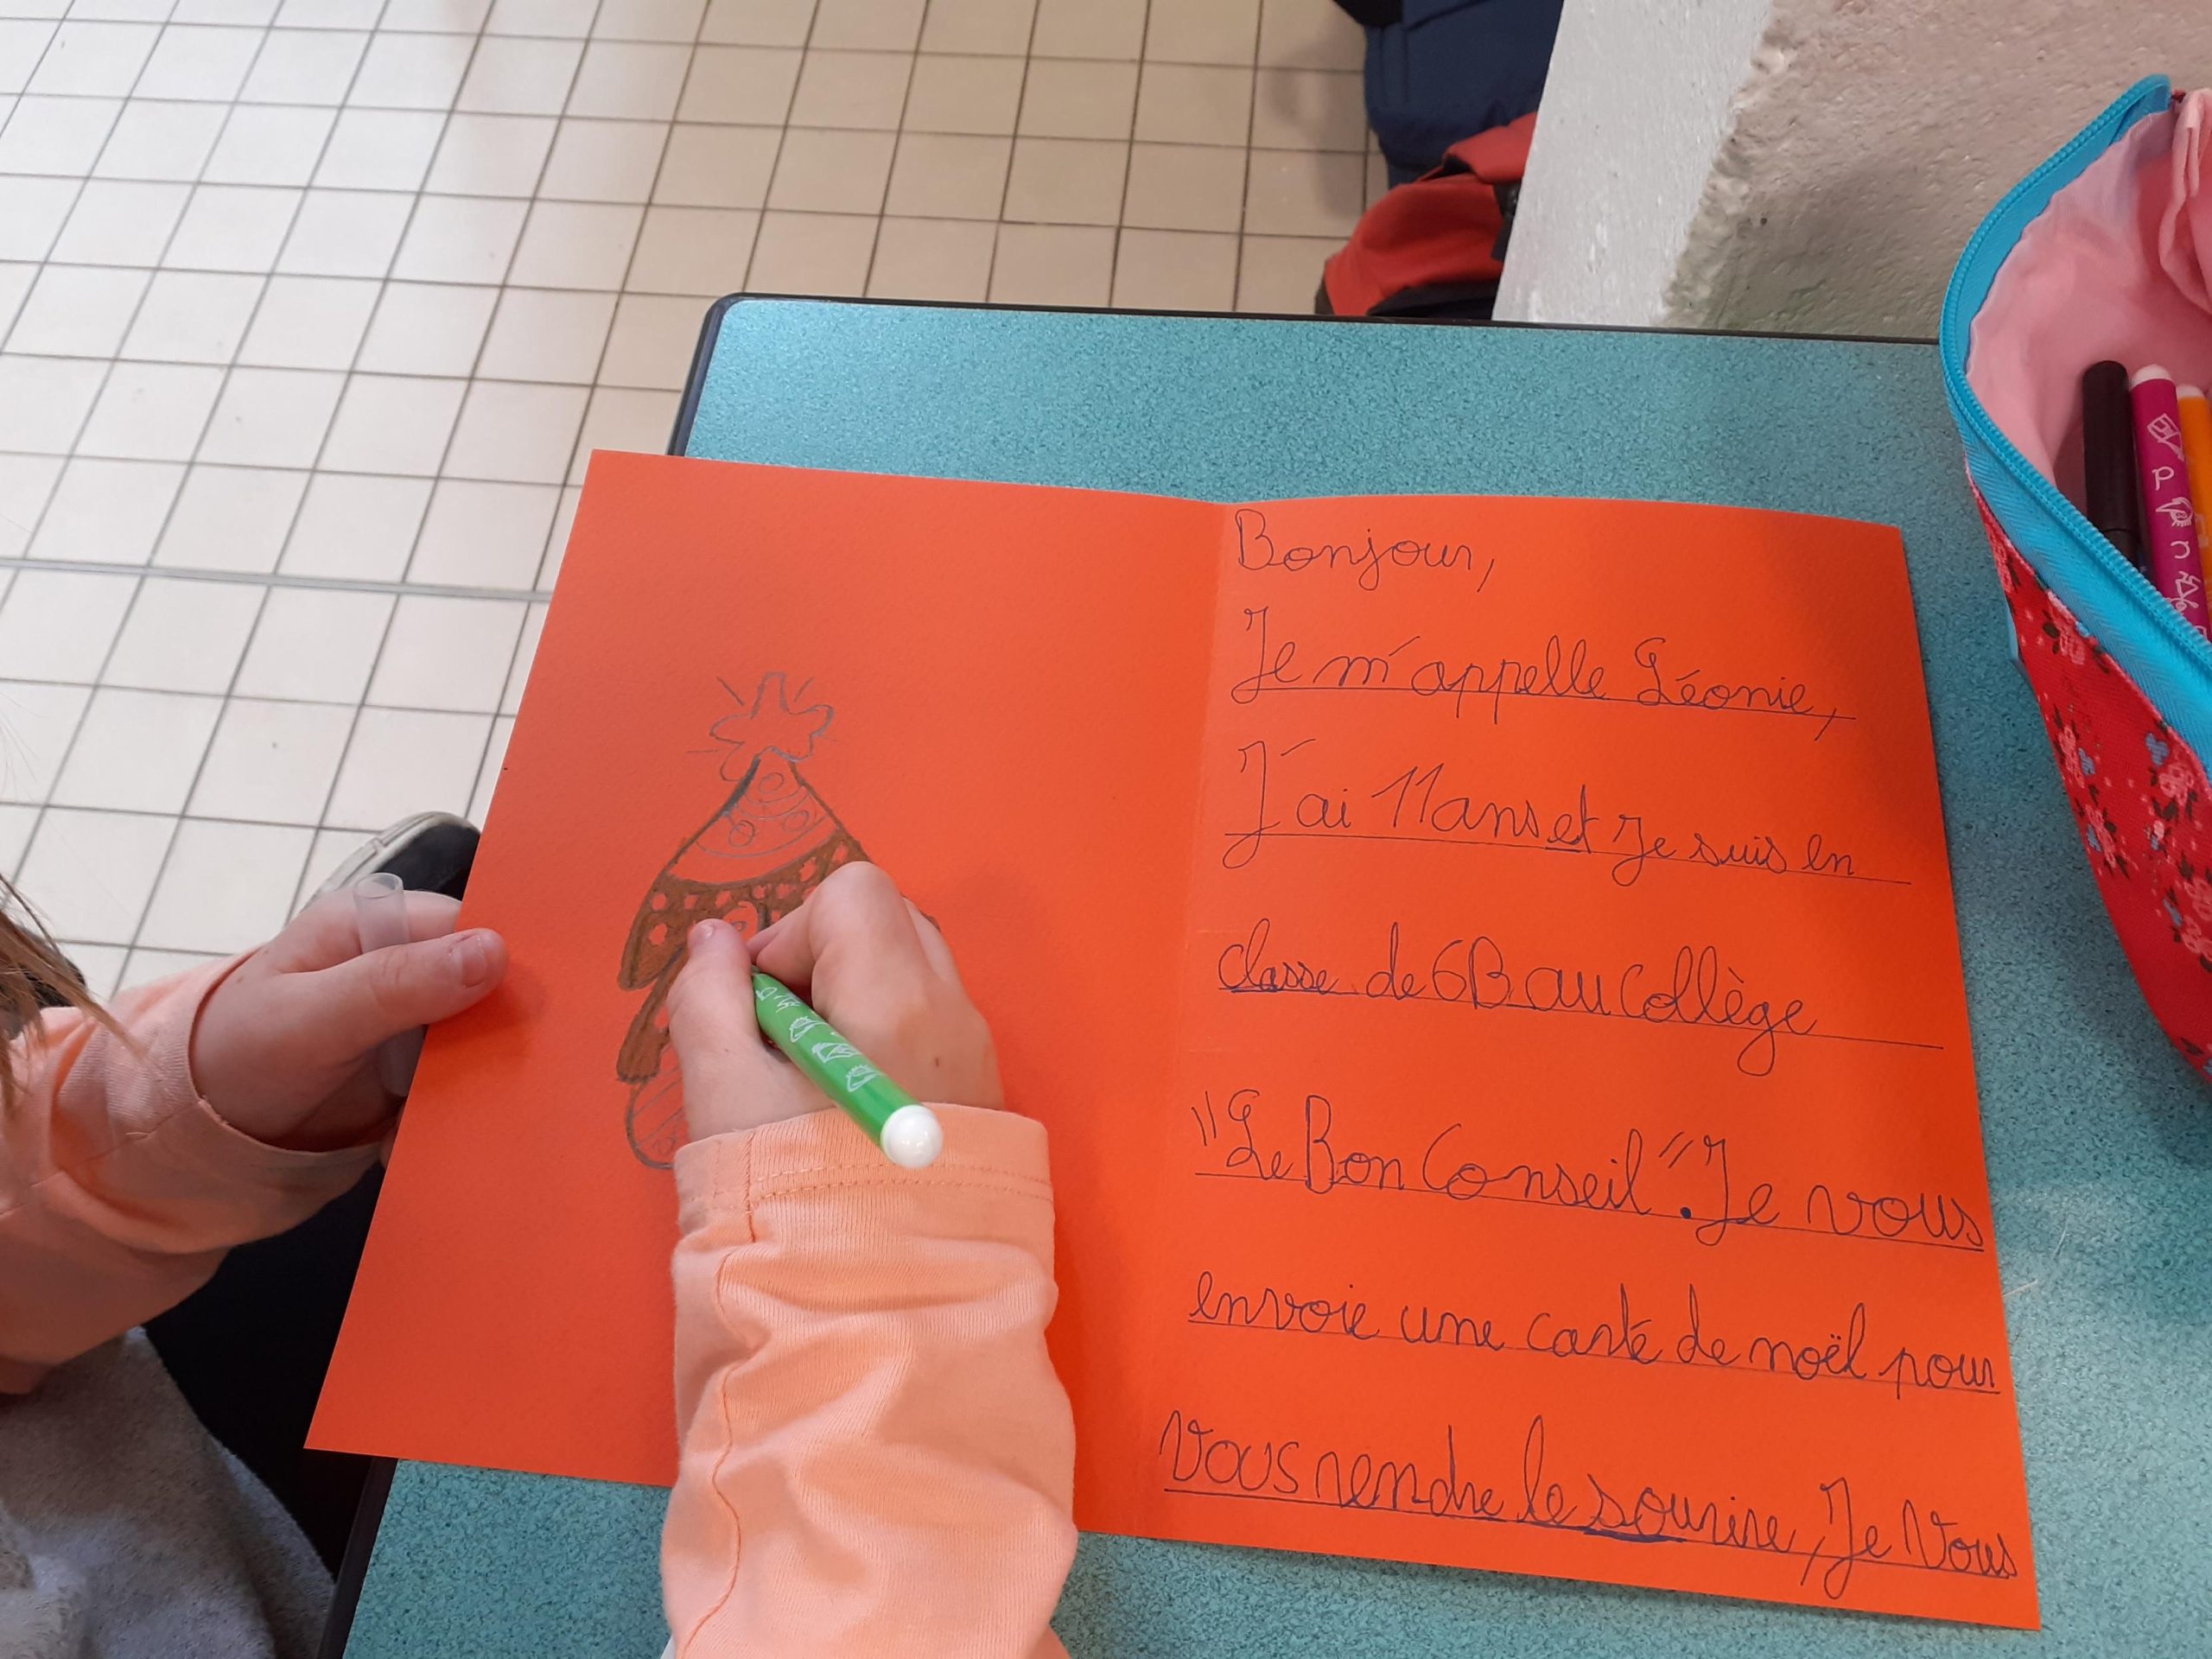 Bonjour,
Je m'appelle Léonie,
J'ai 11 ans et Je suis en
classe de 6B au Collège
"Le Bon Conseil". Je vous
envoie une carte de noël pour
vous rendre le sourire, Je Vous